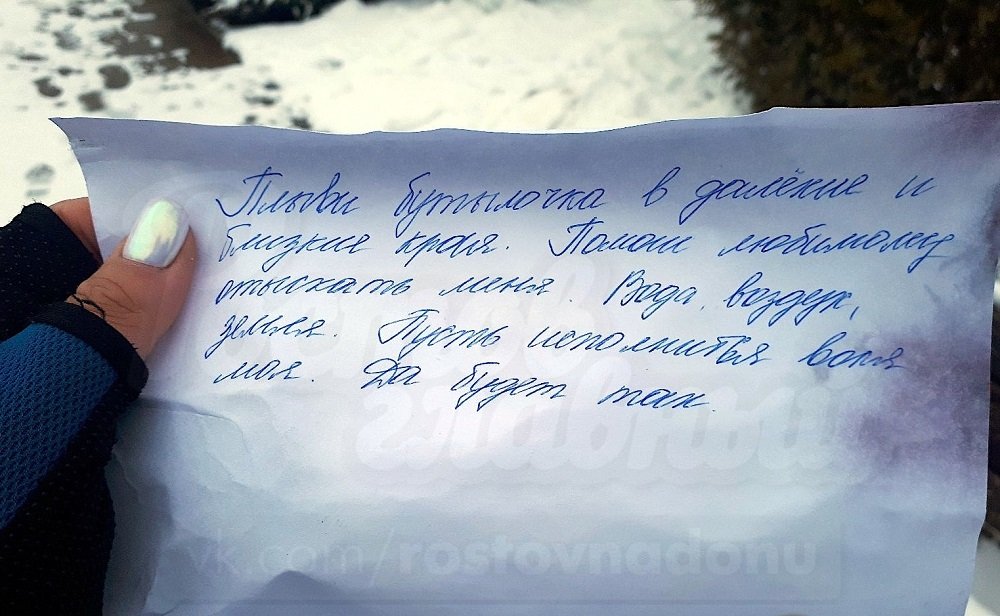 Плыви бутылочка в далёкие и
близкие края. Помоги любимому
отыскать меня. Вода, воздух,
земля. Пусть исполнится воля
моя. Да будет так.
Ростов
главный
vk.com/rostovnadonu